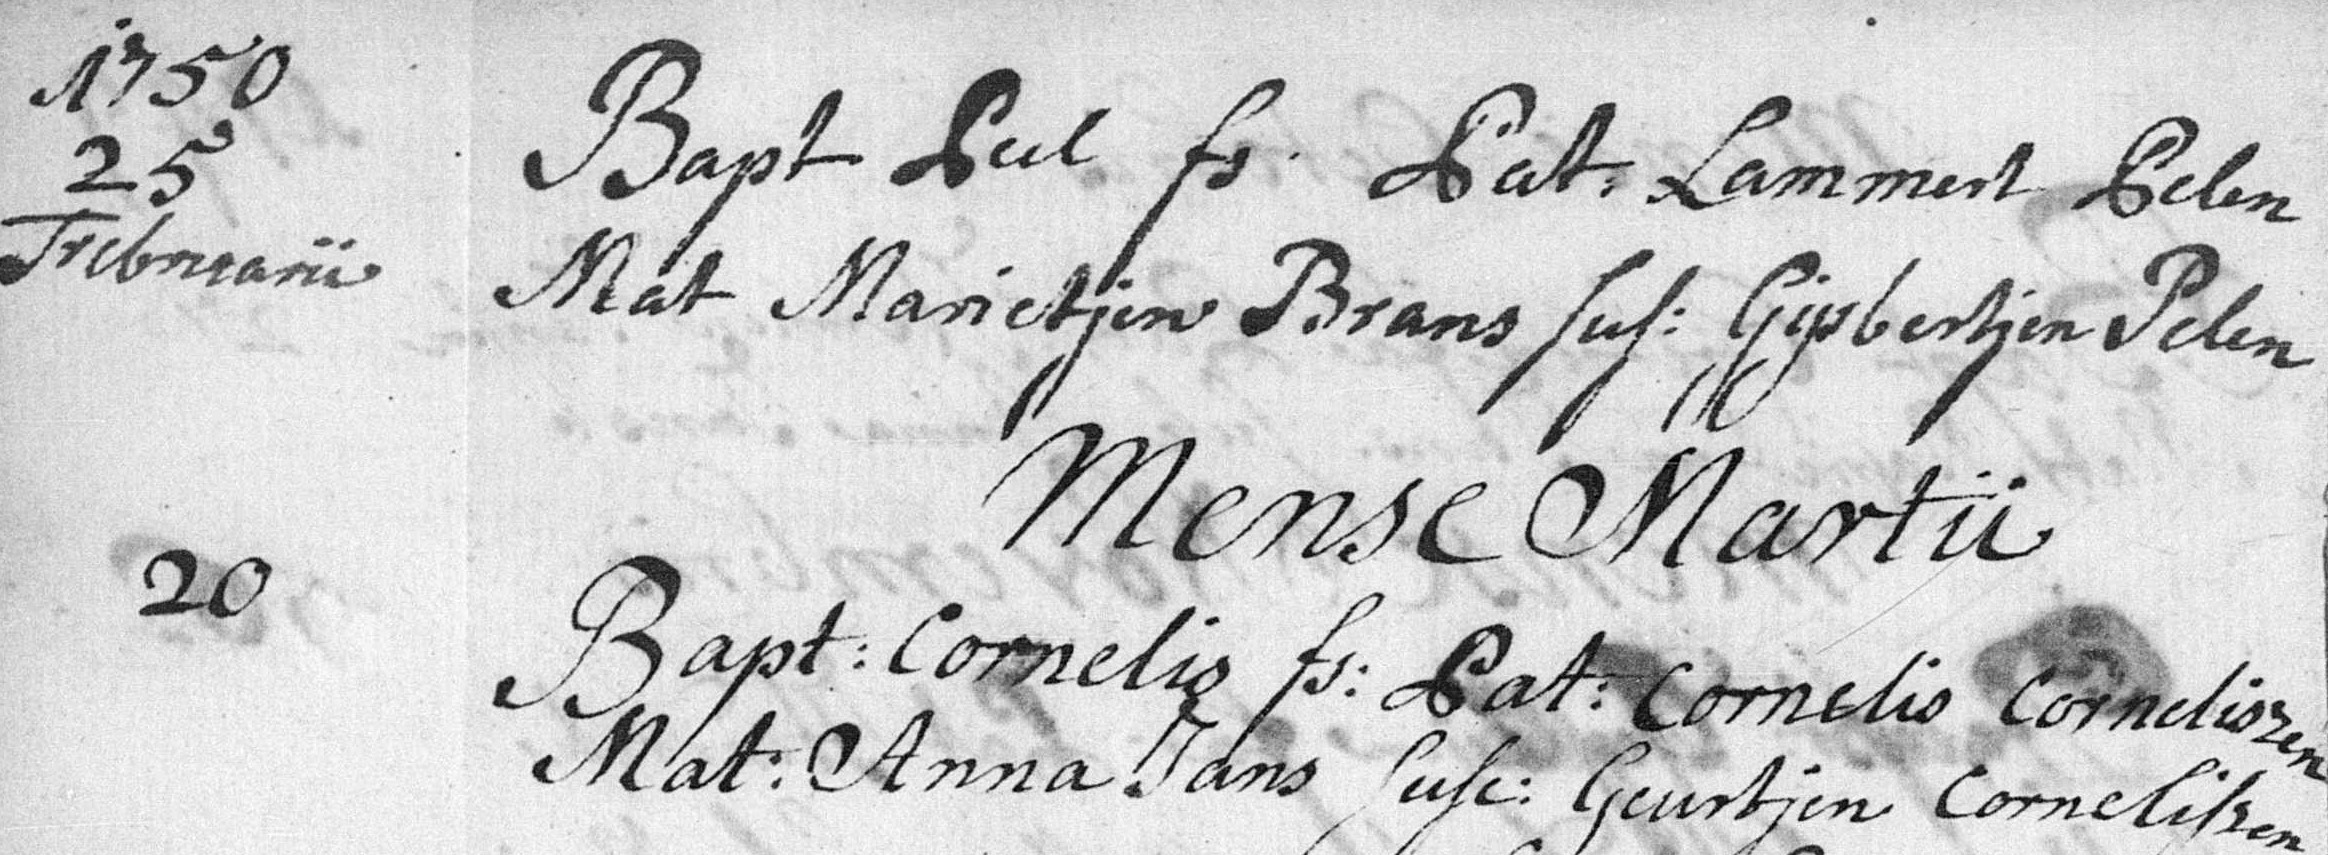 1750
25 Bapt Pul fs. Pat: Lammert Pelen
Februarii Mat Marietjen Brans sus: Gijsbertjen Pelen
Mense Martii
20 Bapt: Cornelis fs: Pat: Cornelis Corneliszen
Mat: Anna Jans susc: Geurtjen Cornelissen